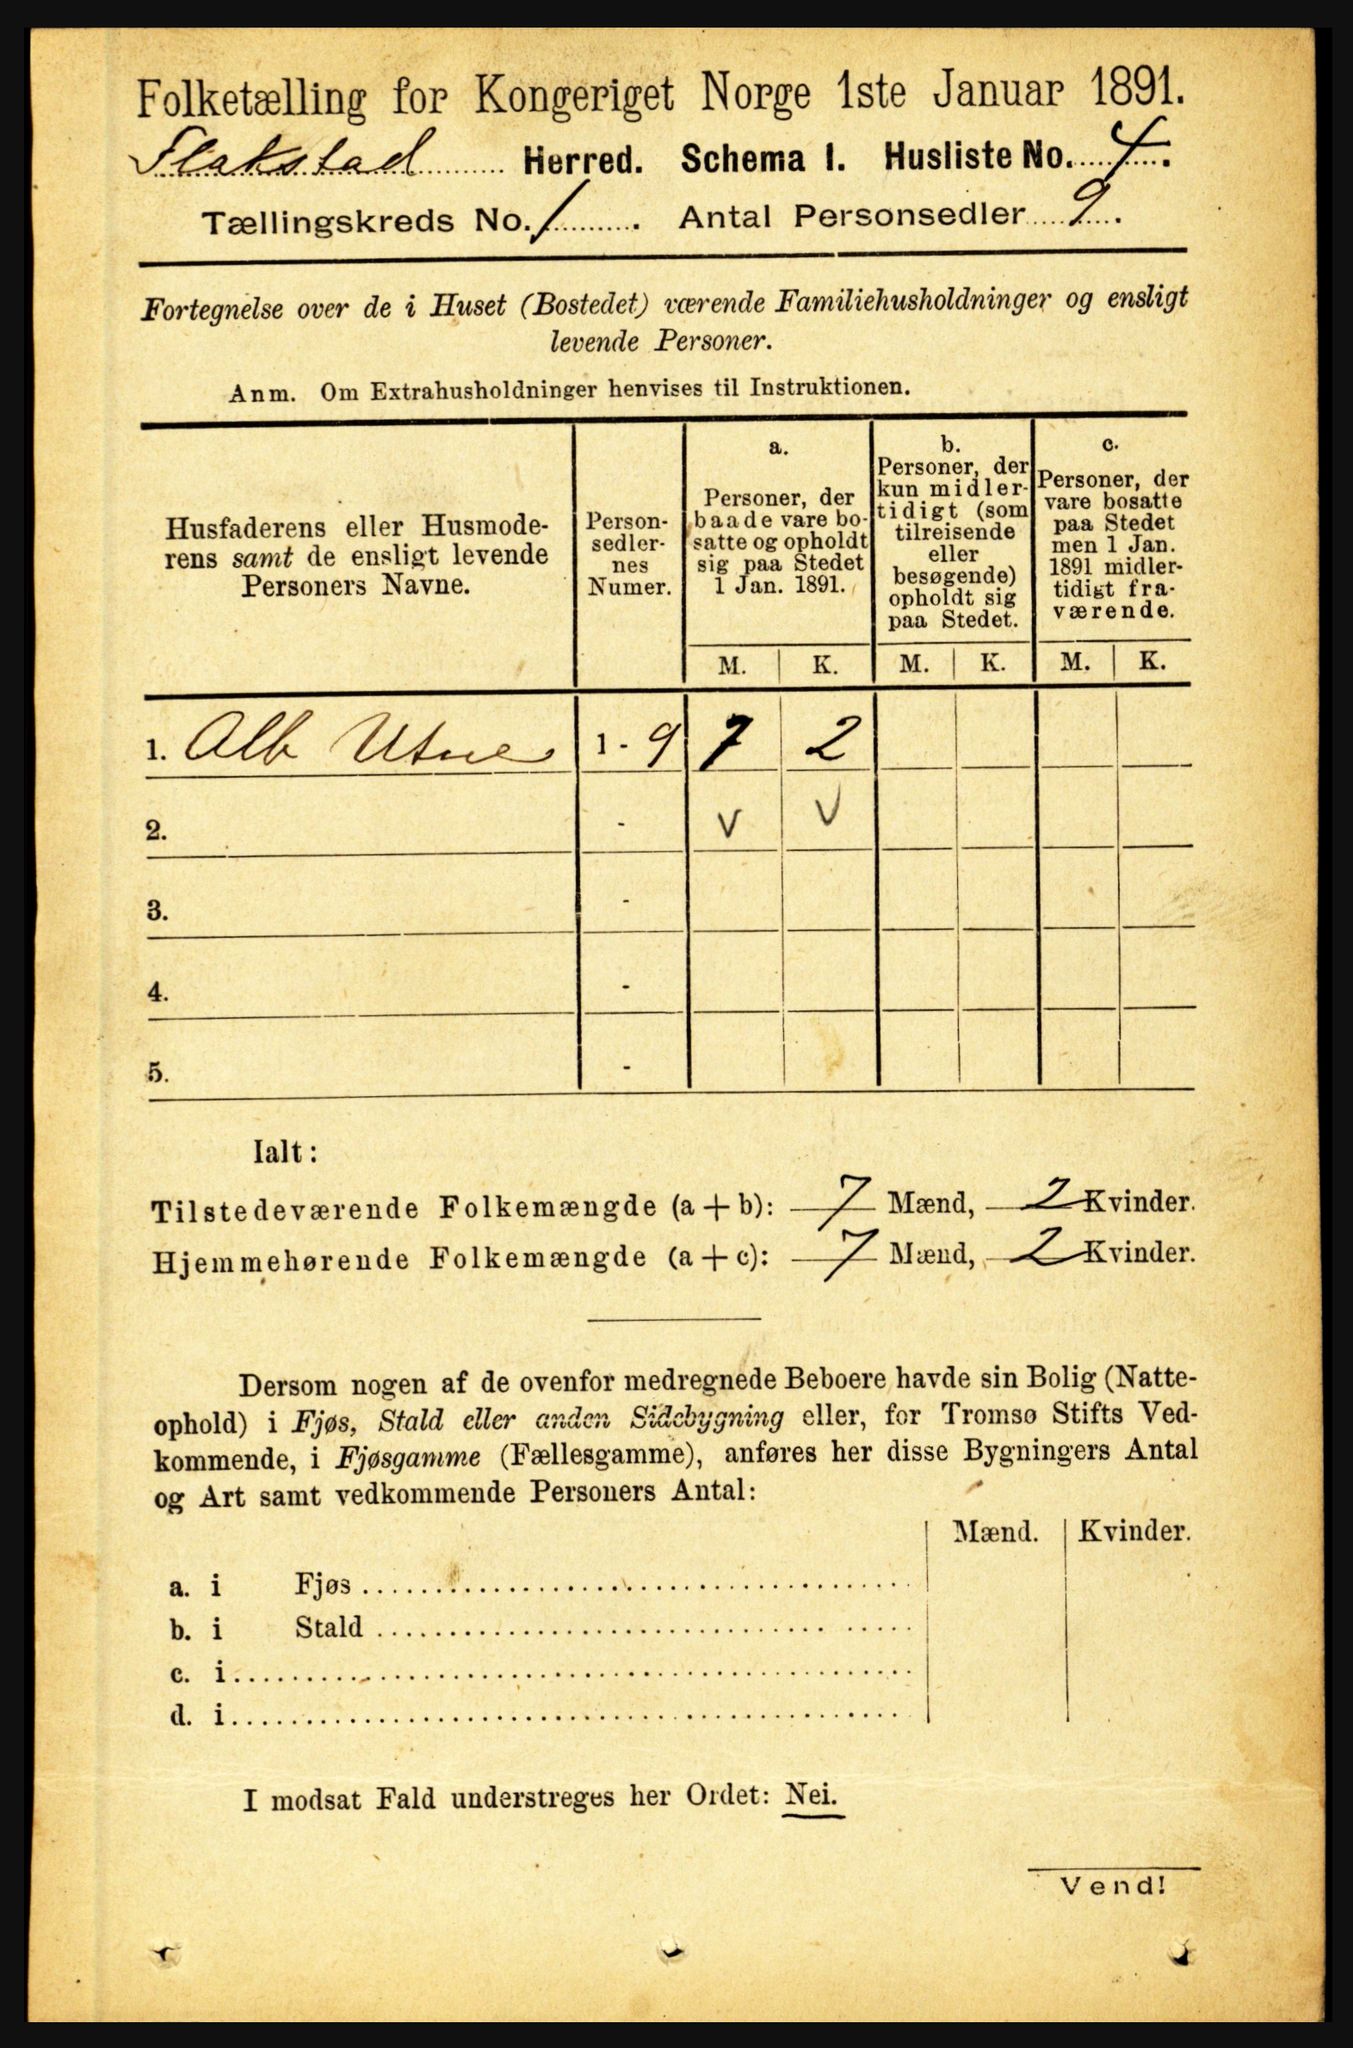 Folketælling for Kongeriget Norge 1ste Januar 1891.
Flakstad Herred. Schema 1. Husliste No. 4.
Tællingskreds No. 1. Antal Personsedler 9.
Fortegnelse over de i Huset (Bostedet) værende Familiehusholdninger og ensligt
levende Personer.
Anm. Om Extrahusholdninger henvises til Instruktionen.
Husfaderens eller Husmode-
rens samt de ensligt levende
Personers Navne.
Person-
sedler-
nes
Numer.
a.
Personer, der
baade vare bo-
satte og opholdt
sig paa Stedet
1 Jan. 1891.
b.
Personer, der
kun midler-
tidigt (som
tilreisende
eller
besøgende)
opholdt sig
paa Stedet.
c.
Personer, der
vare bosatte
paa Stedet
men 1 Jan.
1891 midler-
tidigt fra-
værende.
M. K. M. K. M. K.
1. Alb Utne 1 - 9 7 2
2. - v v
3. -
4. -
5. -
Ialt:
Tilstedeværende Folkemængde (a + b): 7 Mænd, 2 Kvinder.
Hjemmehørende Folkemængde (a + c): 7 Mænd, 2 Kvinder.
Dersom nogen af de ovenfor medregnede Beboere havde sin Bolig (Natte-
ophold) i Fjøs, Stald eller anden Sidebygning eller, for Tromsø Stifts Ved-
kommende, i Fjøsgamme (Fællesgamme), anføres her disse Bygningers Antal
og Art samt vedkommende Personers Antal:
Mænd. Kvinder.
a. i Fjøs
b. i Stald
c. i
d. i
I modsat Fald understreges her Ordet: Nei.
Vend!